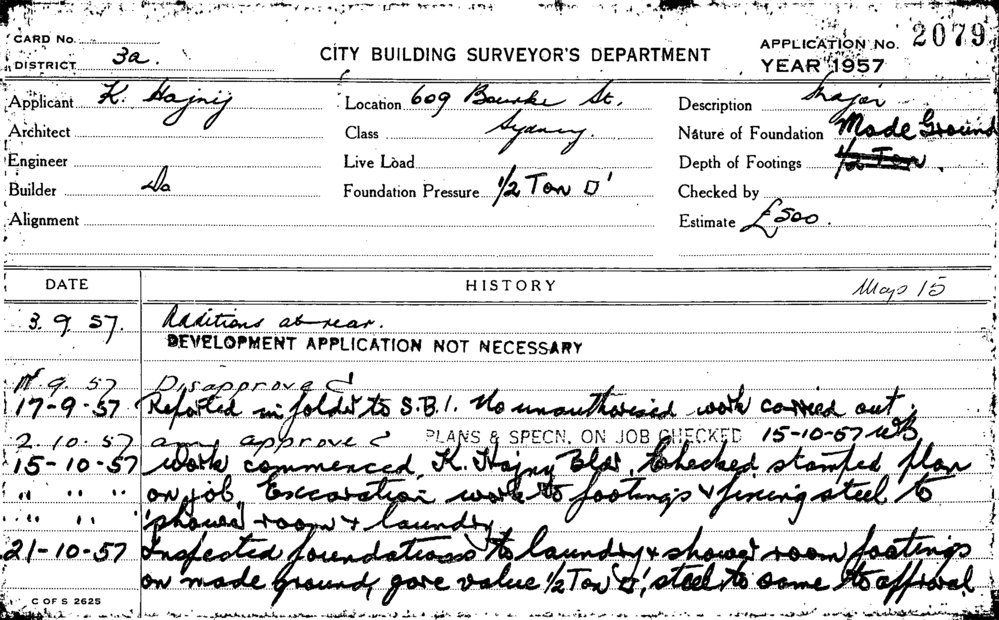 CARD No.
DISTRICT 3a.
CITY BUILDING SURVEYOR'S DEPARTMENT
APPLICATION No. 2079
YEAR 1957
Applicant K. Hajnij
Location 609 Bourke St.
Description Major
Architect
Class Sydney.
Nature of Foundation Made Ground
Engineer
Live Load
Depth of Footings 1/2 Ton.
Builder Do
Foundation Pressure 1/2 Ton □'
Checked by
Alignment
Estimate £500.
DATE
HISTORY
Map 15
3. 9. 57. Additions at rear.
DEVELOPMENT APPLICATION NOT NECESSARY
9. 57 Disapproved
17-9-57 Reported in folder to S.B.I. No unauthorised work carried out.
2. 10. 57 approved PLANS & SPECN. ON JOB CHECKED 15-10-57 WB
15-10-57 Work commenced. K. Hajny Bldr. Checked stamped plan
" " " on job. Excavation work to footings & fixing steel to
" " " shower room & laundry
21-10-57 Inspected foundations to laundry & shower room footings
on made ground, gave value 1/2 Ton □', steel to same to approval.
C OF S 2625